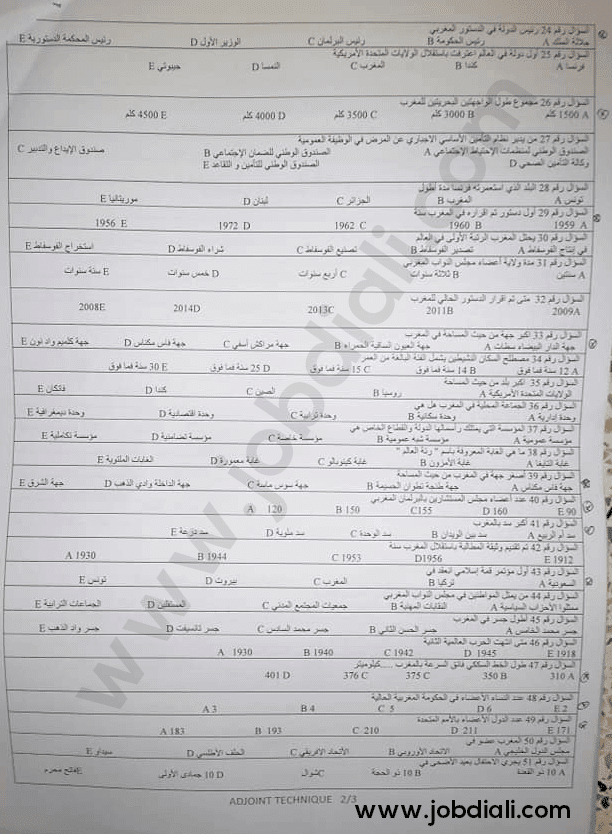 السؤال رقم 24 رئيس الدولة في الدستور المغربي
جلالة الملك A رئيس الحكومة B رئيس البرلمان C الوزير الأول D رئيس المحكمة الدستورية E
السؤال رقم 25 أول دولة في العالم اعترفت باستقلال الولايات المتحدة الأمريكية
فرنسا A كندا B المغرب C النمسا D جيبوتي E
السؤال رقم 26 مجموع طول الواجهتين البحريتين للمغرب
1500 A كلم 3000 B كلم 3500 C كلم 4000 D كلم 4500 E كلم
السؤال رقم 27 من يدير نظام التأمين الأساسي الاجباري عن المرض في الوظيفة العمومية
الصندوق الوطني لمنظمات الاحتياط الإجتماعي A الصندوق الوطني للضمان الإجتماعي B صندوق الإيداع والتدبير C
وكالة التأمين الصحي D الصندوق الوطني للتأمين و التقاعد E
السؤال رقم 28 البلد الذي استعمرته فرنسا مدة أطول
تونس A المغرب B الجزائر C لبنان D موريتانيا E
السؤال رقم 29 أول دستور تم اقراره في المغرب سنة
1959 A 1960 B 1962 C 1972 D 1956 E
السؤال رقم 30 يحتل المغرب الرتبة الأولى في العالم
في إنتاج الفوسفاط A تصدير الفوسفاط B تصنيع الفوسفاط C شراء الفوسفاط D استخراج الفوسفاط E
السؤال رقم 31 مدة ولاية أعضاء مجلس النواب المغربي
A سنتين B ثلاثة سنوات C أربع سنوات D خمس سنوات E ستة سنوات
السؤال رقم 32 متى تم اقرار الدستور الحالي للمغرب
2009A 2011B 2013C 2014D 2008E
السؤال رقم 33 أكبر جهة من حيث المساحة في المغرب
جهة الدار البيضاء سطات A جهة العيون الساقية الحمراء B جهة مراكش أسفي C جهة فاس مكناس D جهة كلميم واد نون E
السؤال رقم 34 مصطلح السكان النشيطين يشمل الفئة البالغة من العمر
12 A سنة فما فوق 14 B سنة فما فوق 15 C سنة فما فوق 25 D سنة فما فوق 30 E سنة فما فوق
السؤال رقم 35 أكبر بلد من حيث المساحة
الولايات المتحدة الأمريكية A روسيا B الصين C كندا D فاتكان E
السؤال رقم 36 الجماعة المحلية في المغرب هل هي
وحدة إدارية A وحدة سكانية B وحدة ترابية C وحدة اقتصادية D وحدة ديمغرافية E
السؤال رقم 37 المؤسسة التي يمتلك رأسمالها الدولة والقطاع الخاص هي
مؤسسة عمومية A مؤسسة شبه عمومية B مؤسسة خاصة C مؤسسة تضامنية D مؤسسة تكاملية E
السؤال رقم 38 ما هي الغابة المعروفة باسم " رئة العالم "
غابة التايغا A غابة الأمزون B غابة كينوبالو C غابة معمورة D الغابات الملتوية E
السؤال رقم 39 أصغر جهة في المغرب من حيث المساحة
جهة فاس مكناس A جهة طنجة تطوان الحسيمة B جهة سوس ماسة C جهة الداخلة وادي الذهب D جهة الشرق E
السؤال رقم 40 عدد أعضاء مجلس المستشارين بالبرلمان المغربي
A 120 B 150 C155 D 160 E 90
السؤال رقم 41 أكبر سد بالمغرب
سد أم الربيع A سد بين الويدان B سد الوحدة C سد ملوية D سد درعة E
السؤال رقم 42 تم تقديم وثيقة المطالبة باستقلال المغرب سنة
A 1930 B 1944 C 1953 D1956 E 1912
السؤال رقم 43 أول مؤتمر قمة إسلامي انعقد في
السعودية A تركيا B المغرب C بيروت D تونس E
السؤال رقم 44 من يمثل المواطنين في مجلس النواب المغربي
ممثلوا الأحزاب السياسية A النقابات المهنية B جمعيات المجتمع المدني C المستقلين D الجماعات الترابية E
السؤال رقم 45 أطول جسر في المغرب
جسر محمد الخامس A جسر الحسن الثاني B جسر محمد السادس C جسر تانسيفت D جسر واد الذهب E
السؤال رقم 46 متى انتهت الحرب العالمية الثانية
A 1930 B 1940 C 1942 D 1945 E 1918
السؤال رقم 47 طول الخط السككي فائق السرعة بالمغرب .....كيلوميتر
310 A 350 B 375 C 376 C 401 D
السؤال رقم 48 عدد النساء الأعضاء في الحكومة المغربية الحالية
A 3 B 4 C 5 D 6 E 2
السؤال رقم 49 عدد الدول الأعضاء بالأمم المتحدة
A 183 B 193 C 210 D 211 E 171
السؤال رقم 50 المغرب عضو في
مجلس الدول الخليجي A الاتحاد الأوروبي B الأتحاد الافريقي C الحلف الأطلسي D سيداو E
السؤال رقم 51 يجرى الاحتفال بعيد الأضحى في
10 A ذو القعدة 10 B ذو الحجة Cشوال 10 D جمادى الأولى Eفاتح محرم
ADJOINT TECHNIQUE 2/3
www.jobdiali.com
www.jobdiali.com